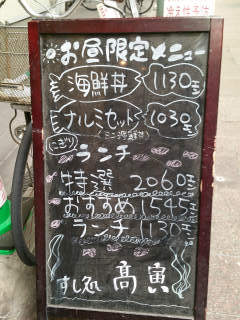 お昼限定メニュー
海鮮丼 1130円
ナルミセット 1030円
ミニ海鮮丼
にぎり
ランチ
特選 2060円
おすすめ 1545円
ランチ 1130円
すし処 髙寅